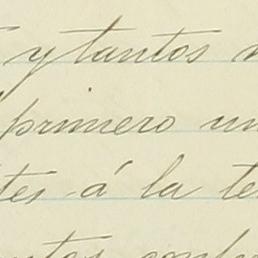 y tantos
primero un
tes á la te